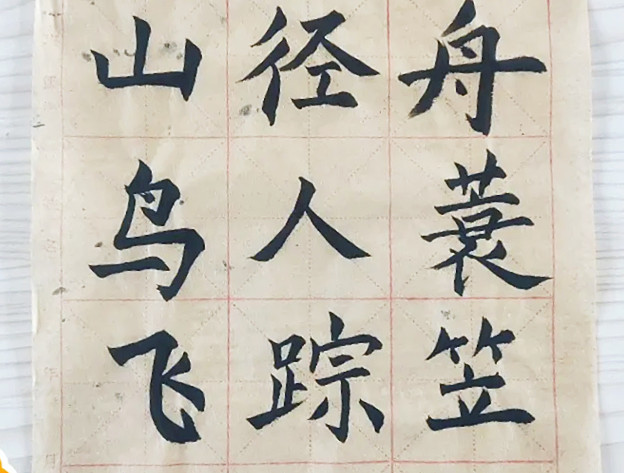 山鸟飞
径人踪
舟蓑笠